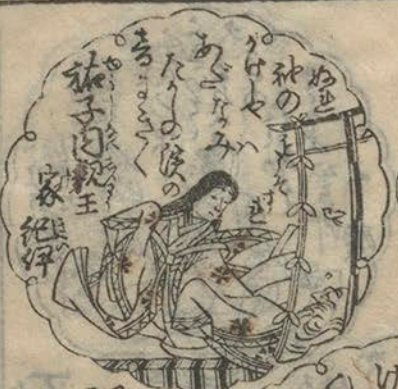 祐子内親王
家紀伊
音にきく
たかしの浜の
あだなみ
ハ
かけじや
袖の
ぬれ
もこそ
すれ